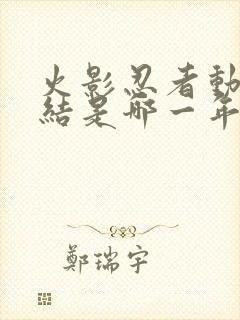 火影忍者動
結是哪一年
鄭瑞宇